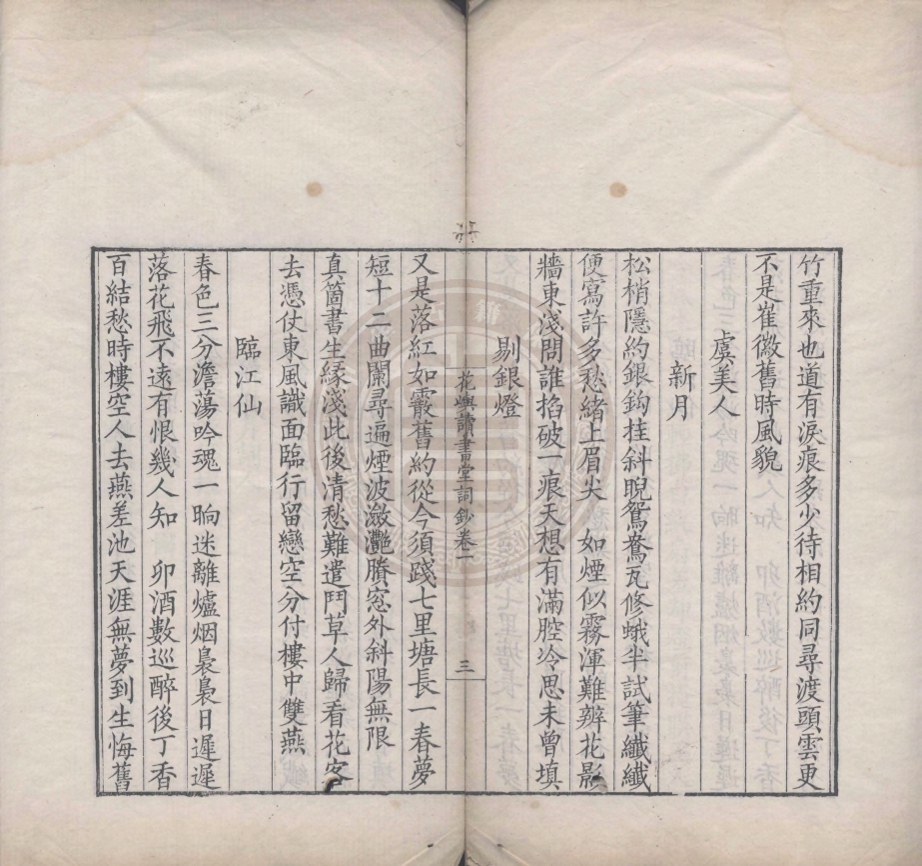 竹重來也道有淚痕多少待相約同尋渡頭雲更
不是崔徽舊時風貌
虞美人
新月
松梢隱約銀鉤挂斜睨鴛鴦瓦修蛾半試筆纖纖
便寫許多愁緒上眉尖　如煙似霧渾難辨花影
牆東淺問誰掐破一痕天想有滿腔冷思未曾填
剔銀燈
花嶼讀書堂詞鈔卷二
三
又是落紅如霰舊約從今須踐七里塘長一春夢
短十二曲闌尋遍煙波瀲灩賸窓外斜陽無限
真箇書生緣淺此後清愁難遣鬥草人歸看花客
去憑仗東風識面臨行留戀空分付樓中雙燕
臨江仙
春色三分澹蕩吟魂一晌迷離爐烟裊裊日遲遲
落花飛不遠有恨幾人知　卯酒數巡醉後丁香
百結愁時樓空人去燕差池天涯無夢到生悔舊